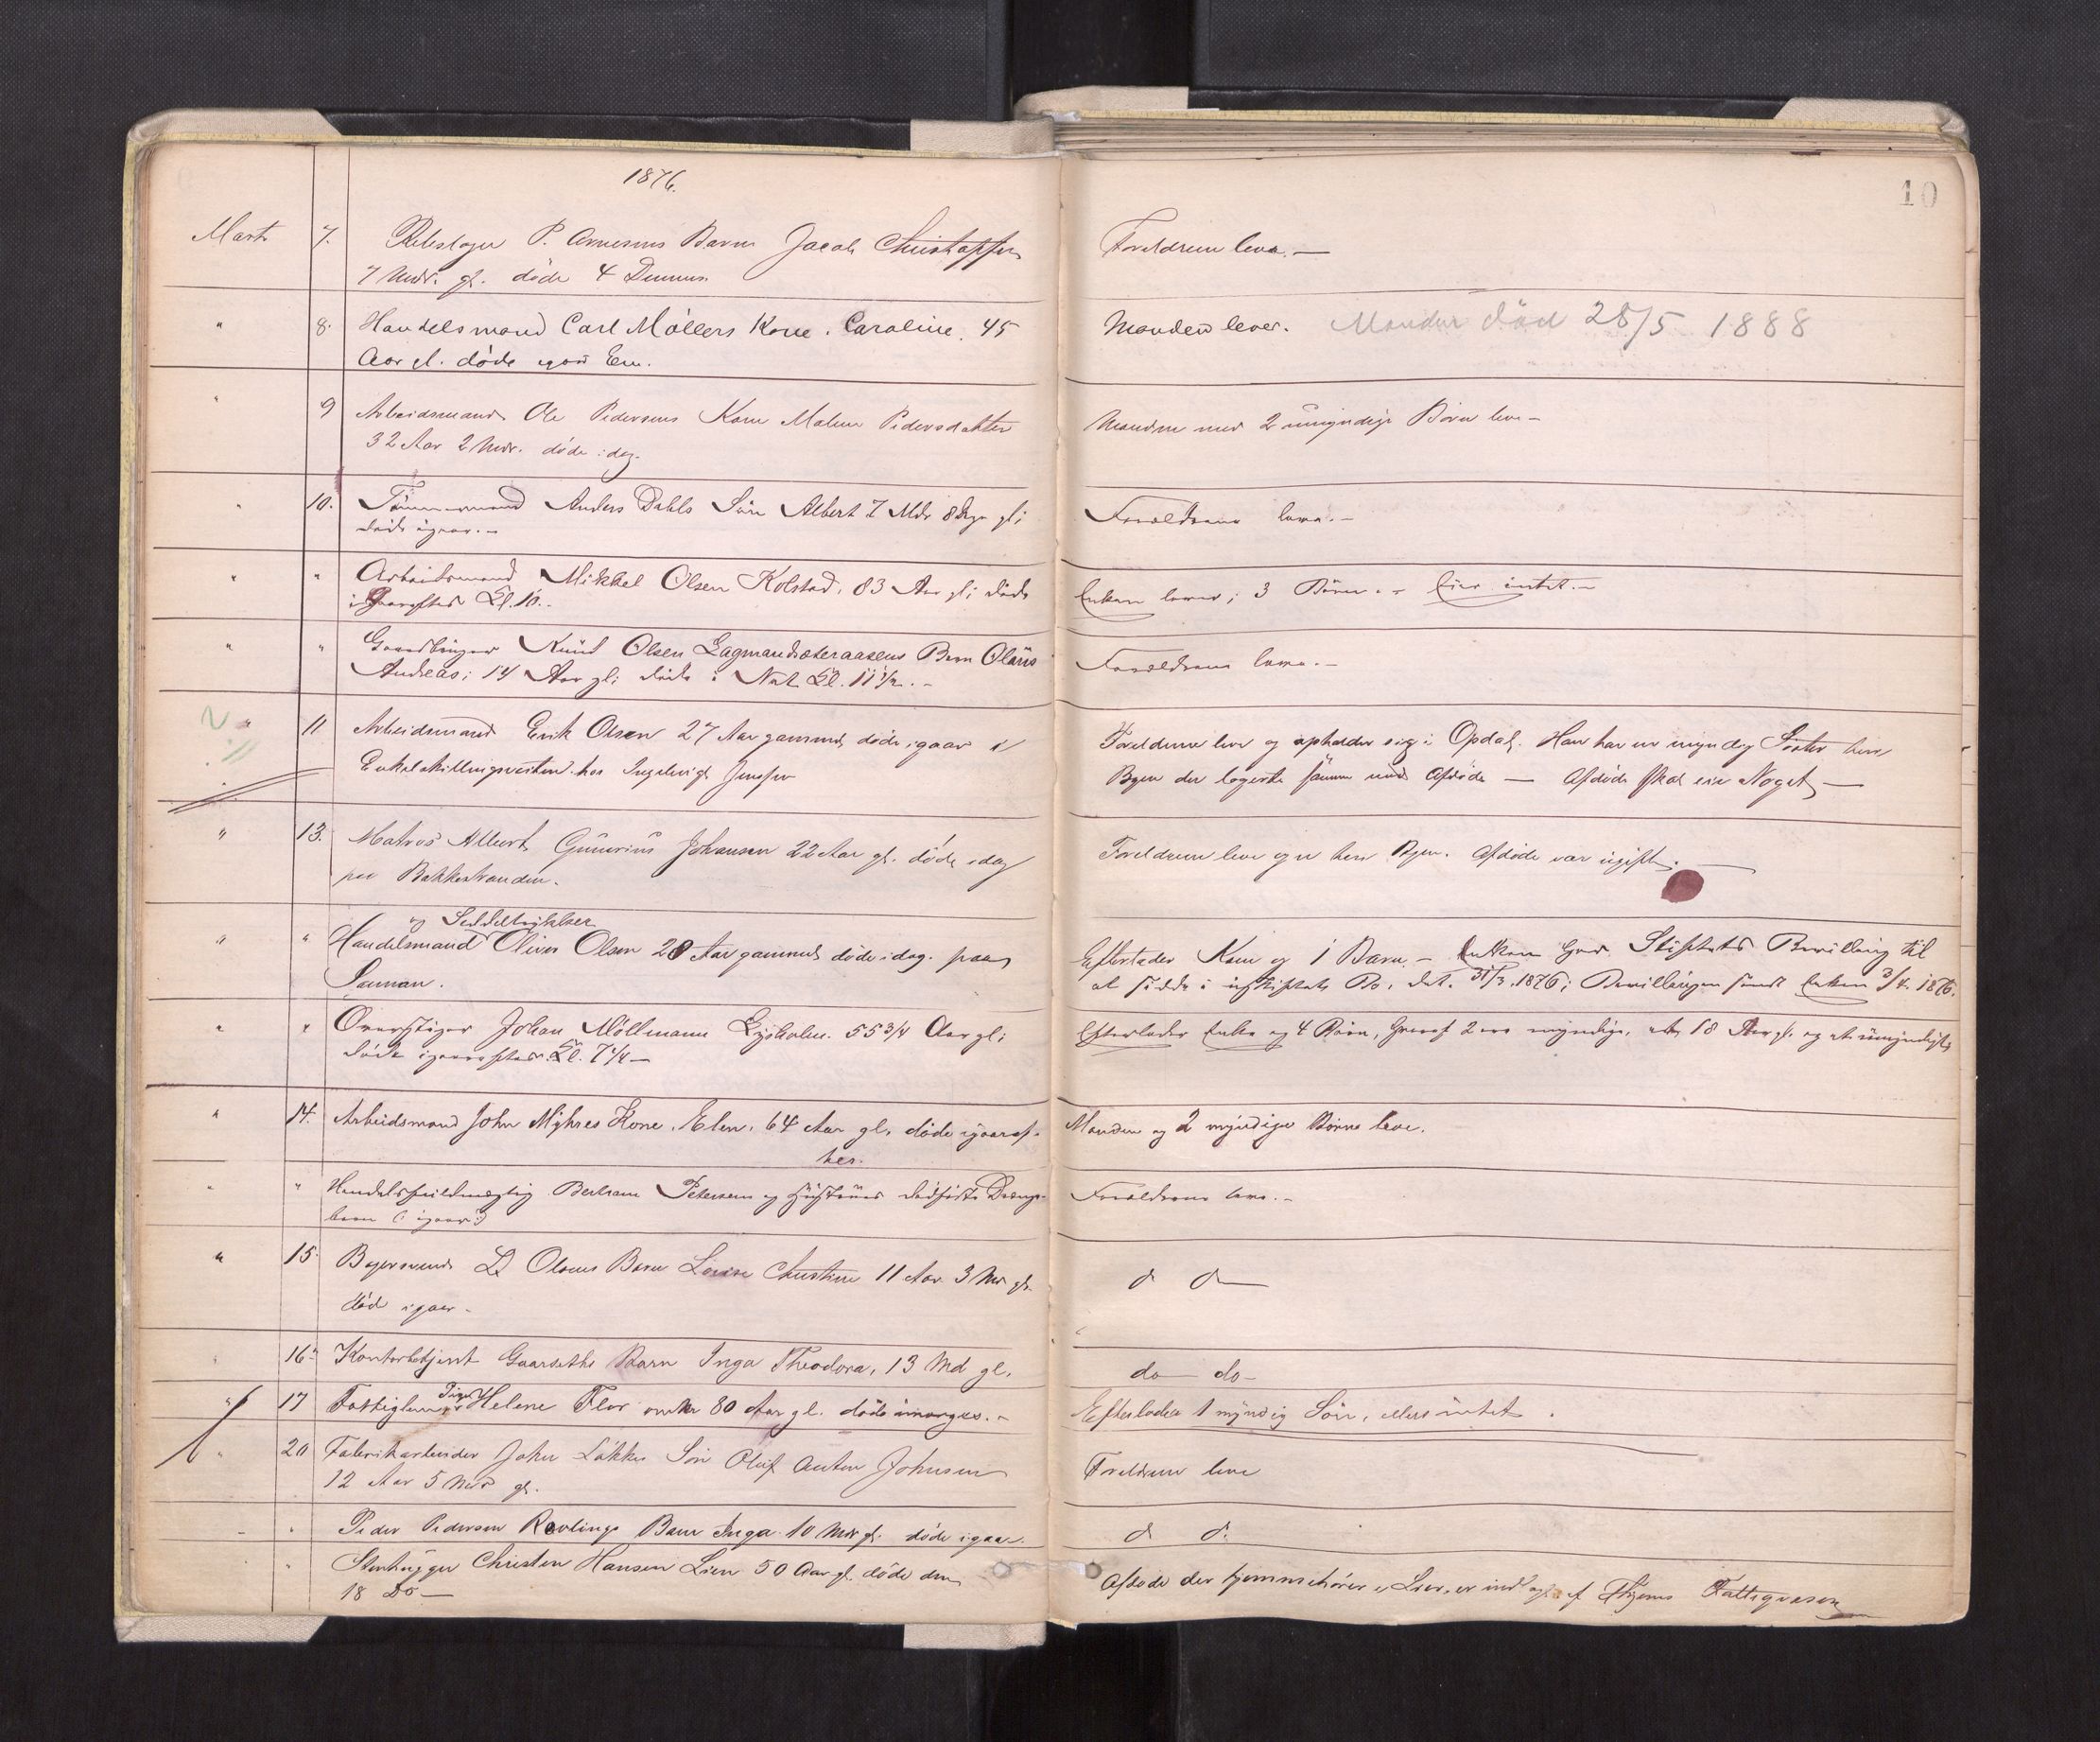 1876.
10
Marts 7. P. Arnesens Barn Jacob Christoffer
7 Mdr. gl. døde 4 Dennes.
Forældrene leve. —
" 8. Handelsmand Carl Möllers Kone. Caroline. 45
Aar gl. døde igaar Em.
Manden lever. Manden död 28/5 1888
" 9 Arbeidsmand Ole Pedersens Kone Malene Pedersdatter
32 Aar 2 Mdr. døde idag.
Manden med 2 umyndige Börn leve —
" 10. Tömmermand Anders Dahls Sön Albert 7 Mdr 8 Dage gl;
döde igaar. —
Forældrene leve. —
" " Arbeidsmand Mikkel Olsen Kolstad, 83 Aar gl; döde
igaaraftes Kl. 10. —
Enken lever; 3 Börn. — Eier intet. —
" " Gaardbruger Knud Olsen Lagmandsæteraasens Barn Olaus
Andreas; 14 Aar gl; döde i Nat Kl. 11 1/2. —
Forældrene leve. —
" 11 Arbeidsmand Erik Olsen 27 Aar gammel, døde igaar i
Enkelskillingsveiten hos Ingebrigt Jenssen
Forældrene leve og opholder sig i Opdal. Han har en myndig Søster her i
Byen der logerte sammen med Afdøde — Afdøde skal eie Noget —
" 13. Matros Albert Gunerius Johansen 22 Aar gl. døde idag
paa Bakkestranden.
Forældrene leve og er her i Byen. Afdøde var ugift. —
" " og Seddeltrykker
Handelsmand Oliver Olsen 28 Aar gammel døde idag. paa
Efterlader Kone og 1 Barn. — Enken har Stiftets Bevilling til
at sidde i uskiftet Bo, dat. 31/3. 1876; Bevillingen sendt Enken 3/4. 1876.
" " Johan Möllmann Lysholm. 55 3/4 Aar gl;
döde igaaraftes Kl. 7 1/4 —
Efterlader Enke og 4 Börn, hvoraf 2 ere myndige, et 18 Aar gl. og et umyndigt
" 14. Arbeidsmand John Myhres Kone, Elen, 64 Aar gl. døde igaaraf-
tes.
Manden og 2 myndige Börn leve.
" " Handelsfuldmægtig Bertram Petersen og Hustrues dødfødte Drenge-
barn (: igaar :)
Forældrene leve. —
" 15. L Olsens Barn Louise Christine 11 Aar 3 Md gl.
död igaar —
do do —
16 Kontorbetjent Gaarseths Barn Inga Theodora, 13 Md gl.
do do —
" 17 Fattiglem Pige Helene Flor omtr 80 Aar gl. døde imorges. —
Efterlader 1 myndig Sön, ellers intet.
" 20 Fabrikarbeider John Løkkes Sön Oluf Anton Johnsen
12 Aar 5 Mdr gl.
Forældrene leve
" Peder Pedersen Røvlings Barn Inga 10 Mdr gl. døde igaar.
do do.
" Stenhugger Christen Hansen Lien 50 Aar gl. døde den
18 do —
Afdøde der hjemmehører i Lier, er af Fattigvæsen